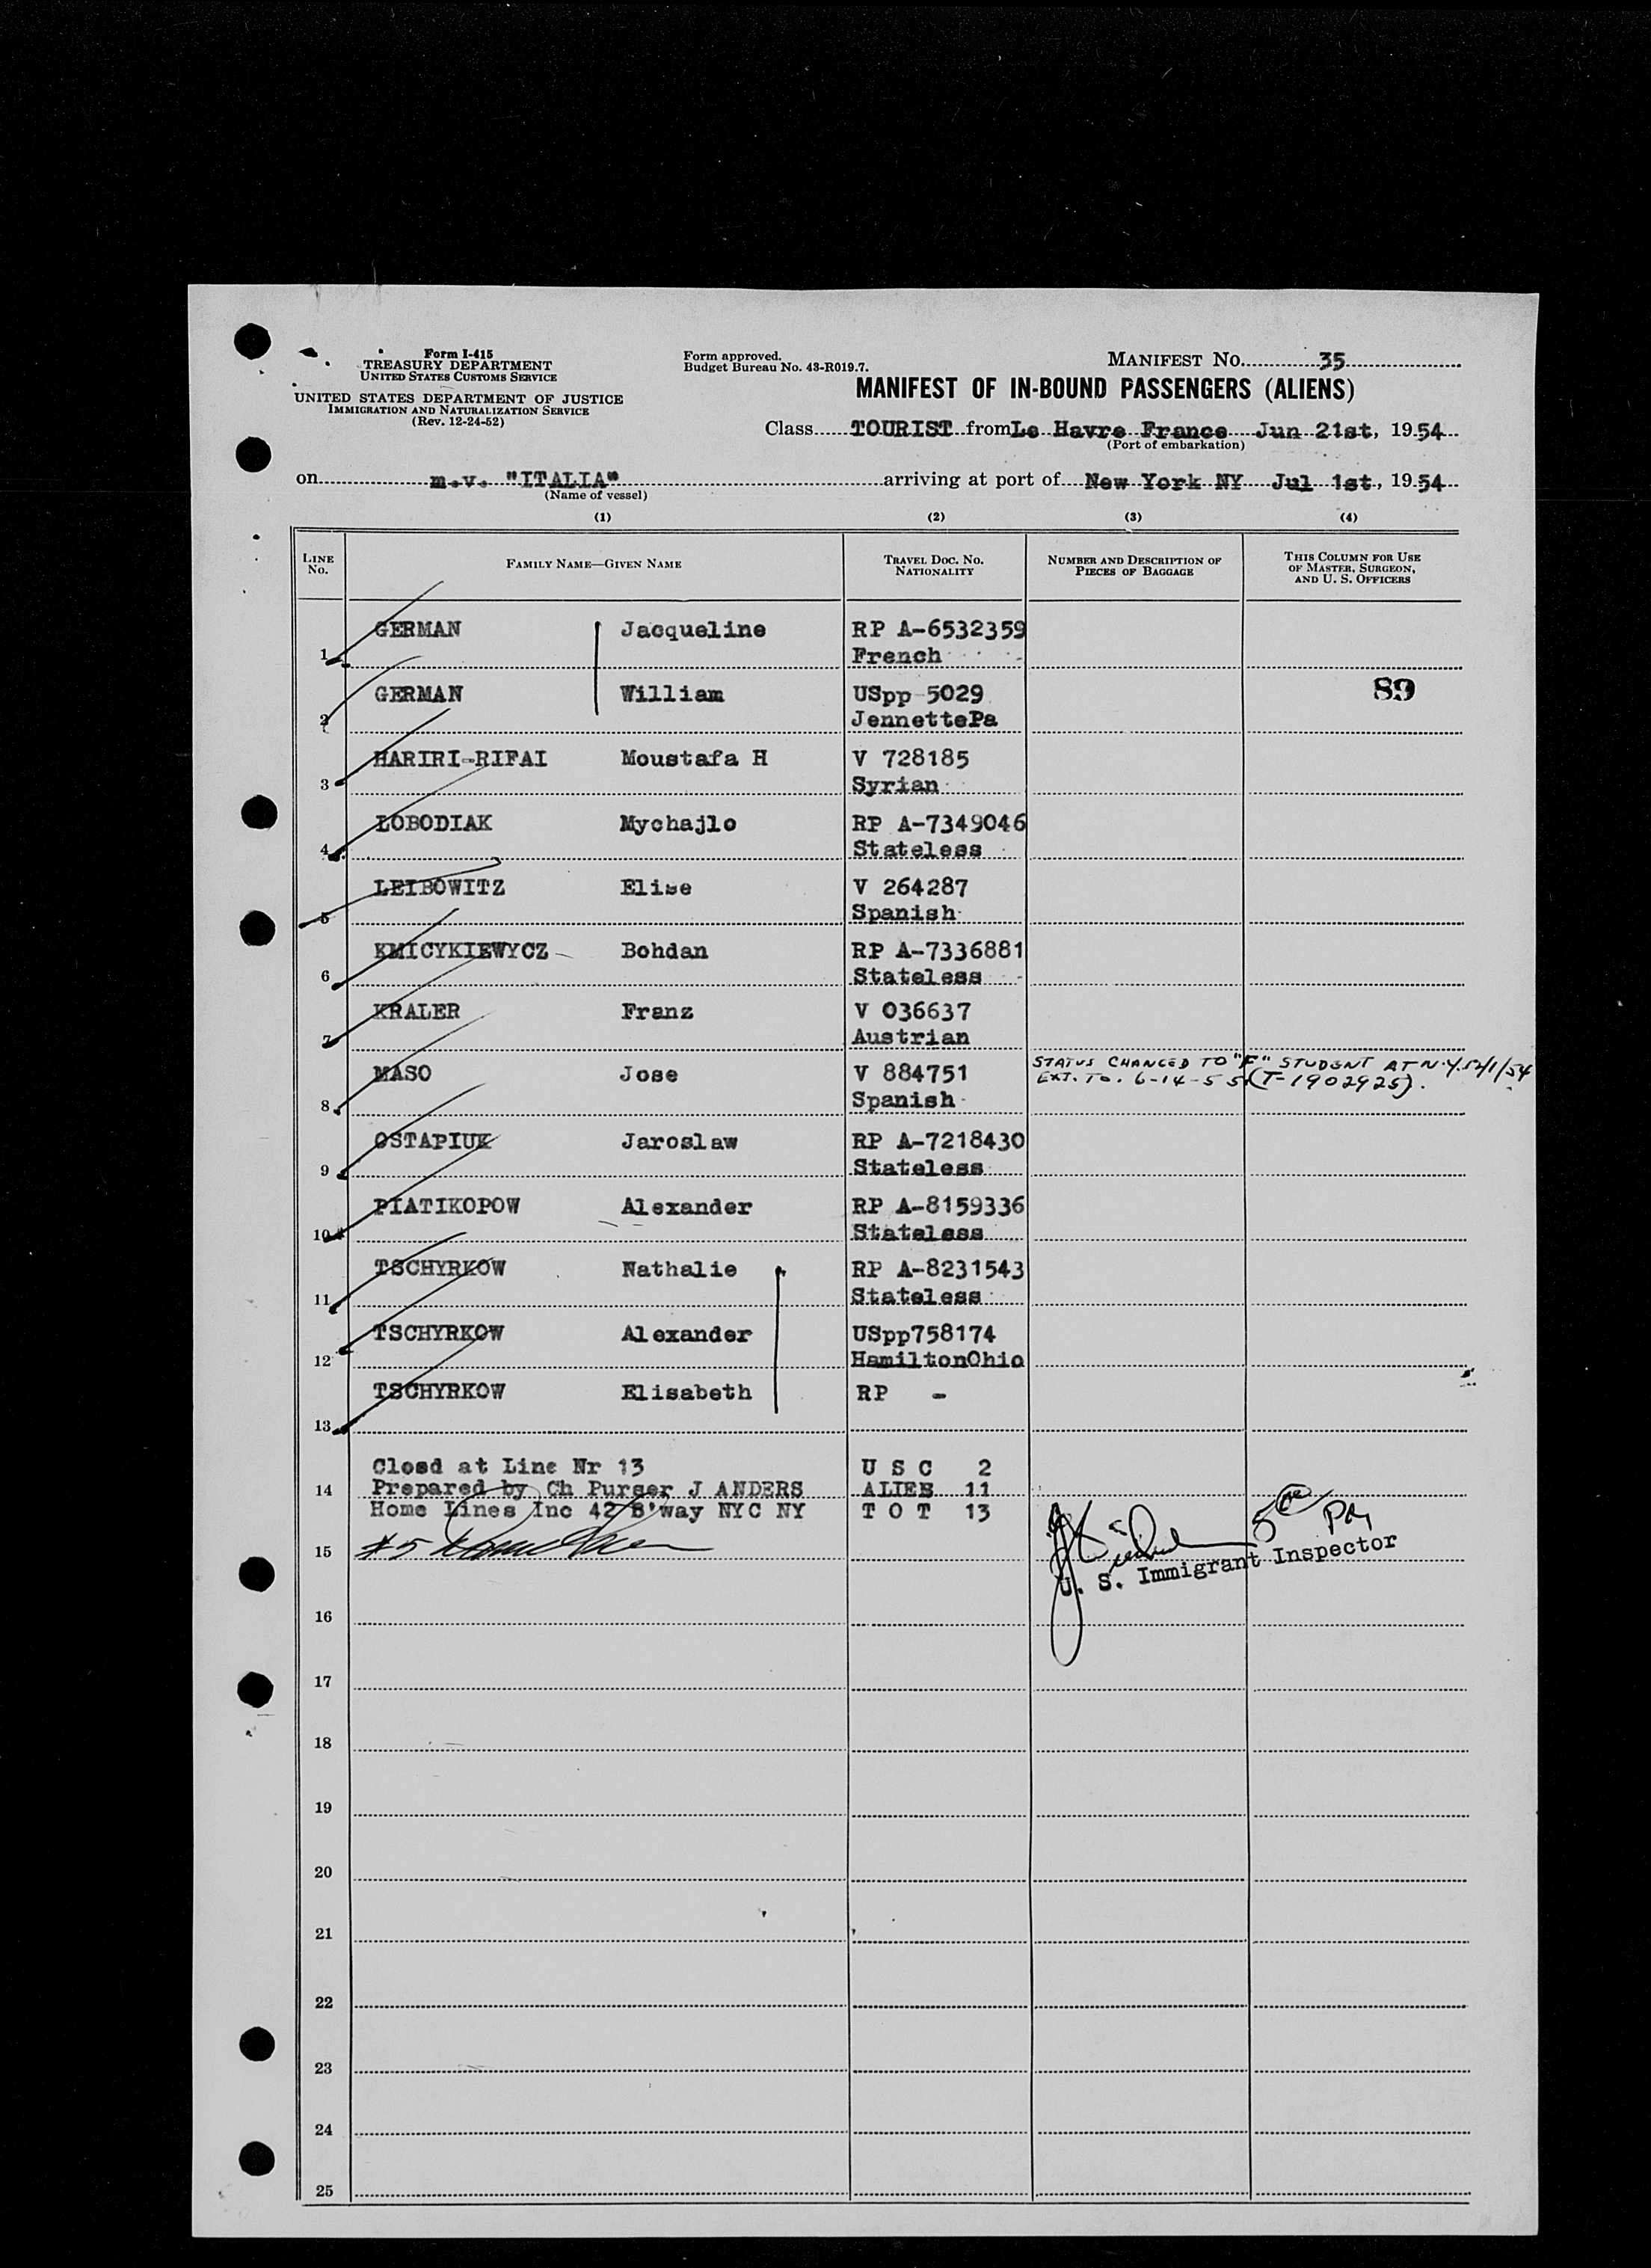 Form I-415
TREASURY DEPARTMENT
UNITED STATES CUSTOMS SERVICE
UNITED STATES DEPARTMENT OF JUSTICE
IMMIGRATION AND NATURALIZATION SERVICE
(Rev. 12-24-52)
Form approved.
Budget Bureau No. 43-R019.7.
MANIFEST No. 35
MANIFEST OF IN-BOUND PASSENGERS (ALIENS)
Class TOURIST from Le Havre France Jun 21st, 1954
(Port of embarkation)
on m.v. "ITALIA" arriving at port of New York NY Jul 1st, 1954
(Name of vessel)
(1) (2) (3) (4)
LINE No. FAMILY NAME—GIVEN NAME TRAVEL DOC. NO. NATIONALITY NUMBER AND DESCRIPTION OF PIECES OF BAGGAGE THIS COLUMN FOR USE OF MASTER, SURGEON, AND U. S. OFFICERS
GERMAN Jacqueline RP A-6532359
1 French
GERMAN William USpp 5029 89
2 JennettePa
HARIRI-RIFAI Moustafa H V 728185
3 Syrian
LOBODIAK Mychajlo RP A-7349046
4 Stateless
LEIBOWITZ Elise V 264287
5 Spanish
KMICYKIEWYCZ Bohdan RP A-7336881
6 Stateless
KRALER Franz V 036637
7 Austrian
MASO Jose V 884751 STATUS CHANGED TO "F" STUDENT AT N.Y.
8 Spanish EXT. TO. 6-14-55 (T-1902925).
OSTAPIUK Jaroslaw RP A-7218430
9 Stateless
PIATIKOPOW Alexander RP A-8159336
10 Stateless
TSCHYRKOW Nathalie RP A-8231543
11 Stateless
TSCHYRKOW Alexander USpp758174
12 HamiltonOhio
TSCHYRKOW Elisabeth RP -
13
Closd at Line Nr 13 U S C 2
14 Prepared by Ch Purser J ANDERS ALIEN 11
Home Lines Inc 42 B'way NYC NY T O T 13
15 #5
U. S. Immigrant Inspector
16
17
18
19
20
21
22
23
24
25